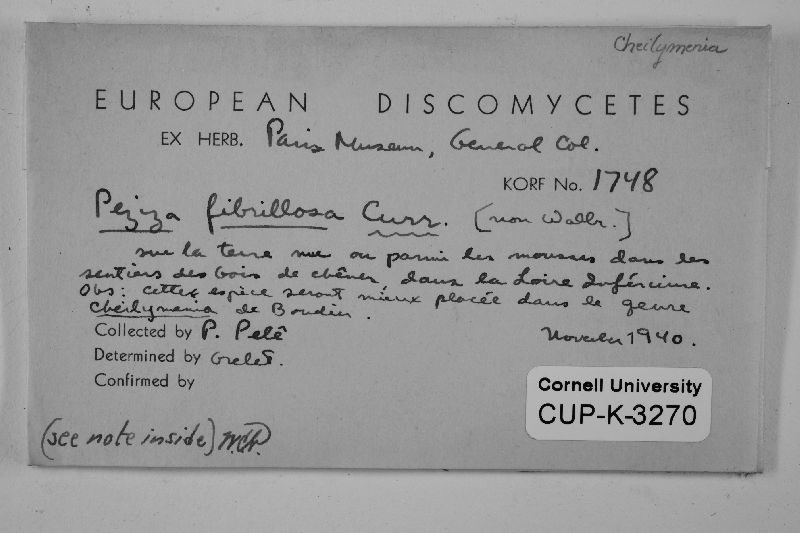 Cheilymenia
EUROPEAN DISCOMYCETES
EX HERB. Paris Museum, General Col.
KORF No. 1748
Peziza fibrillosa Curr. [non Wallr.]
sur la terre nue ou parmi les mousses dans les
sentiers des bois de chênes, dans la Loire Inférieure.
Obs: cette espèce serait mieux placée dans le genre
Cheilymenia de Boudier.
Collected by P. Pelé
November 1940.
Determined by Grelet.
Confirmed by
Cornell University
CUP-K-3270
(see note inside)